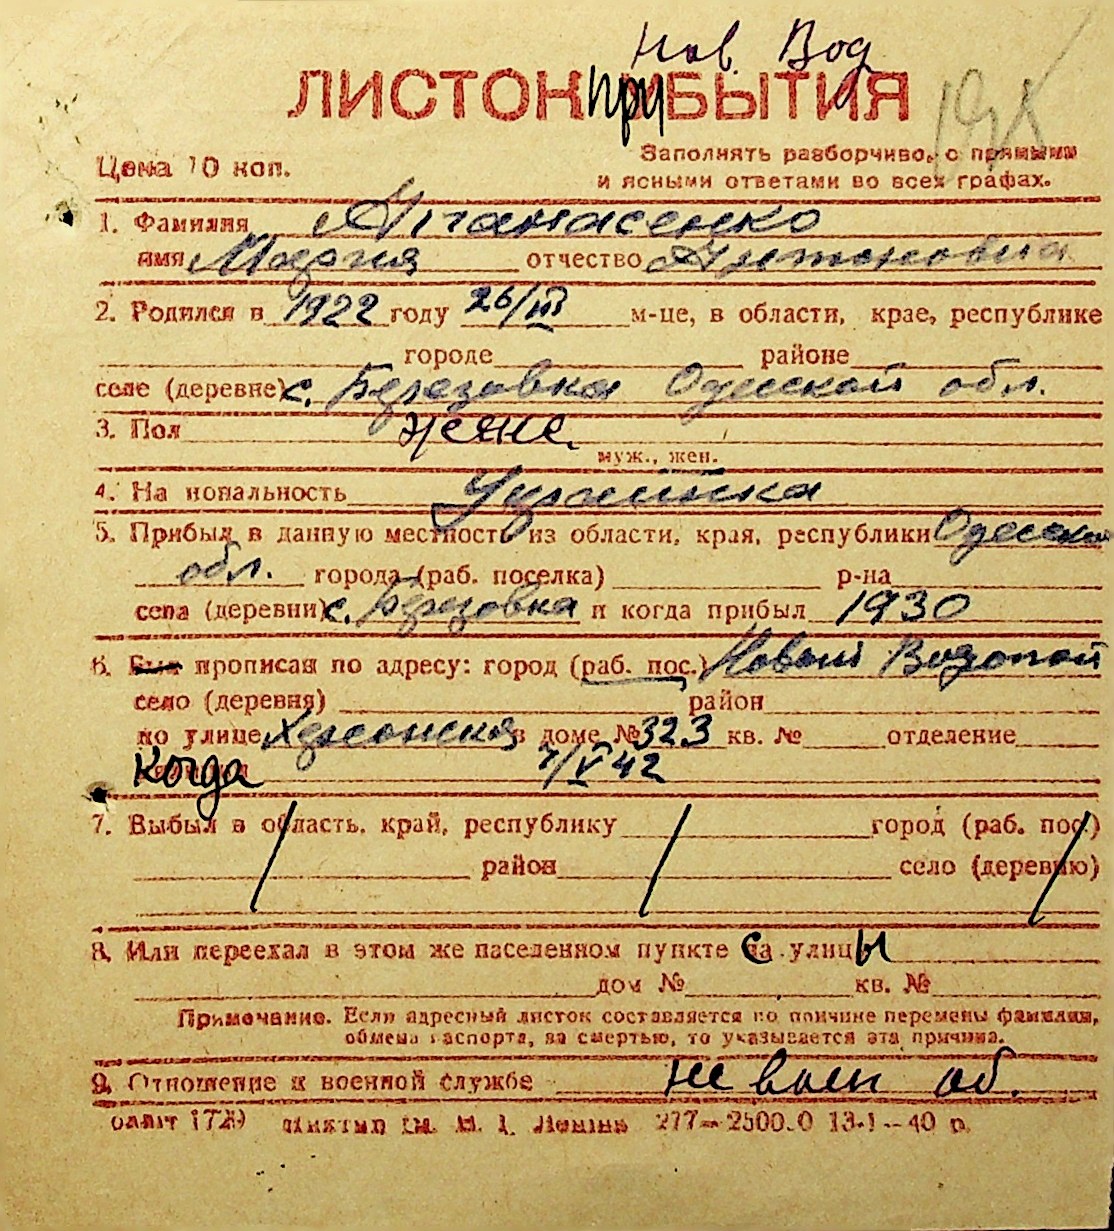 Нов. Вод
ЛИСТОК при БЫТИЯ
Цена 10 коп.
Заполнять разборчиво, с прямыми
и ясными ответами во всех графах.
1. Фамилия Атанасенко
имя Мария отчество Антоновна
2. Родился в 1922 году 26/III м-це, в области, крае, республике
городе районе
селе (деревне) с. Березовка Одесской обл.
3. Пол женс.
муж., жен.
4. На нональность Украинка
5. Прибыл в данную местность из области, края, республики Одесской
обл. города (раб. поселка) р-на
села (деревни) с. Березовка и когда прибыл 1930
6. Был прописан по адресу: город (раб. пос.) Новый Водопой
село (деревня) район
по улице Херсонская в доме № 323 кв. № отделение
Когда 7/V 42
7. Выбыл в область, край, республику город (раб. пос.)
район село (деревню)
8. Или переехал в этом же населенном пункте с улицы
дом № кв. №
Примечание. Если адресный листок составляется по причине перемены фамилии,
обмена паспорта, за смертью, то указывается эта причина.
9. Отношение к военной службе не воен об.
1729 277—2500.0 13-1—40 р.